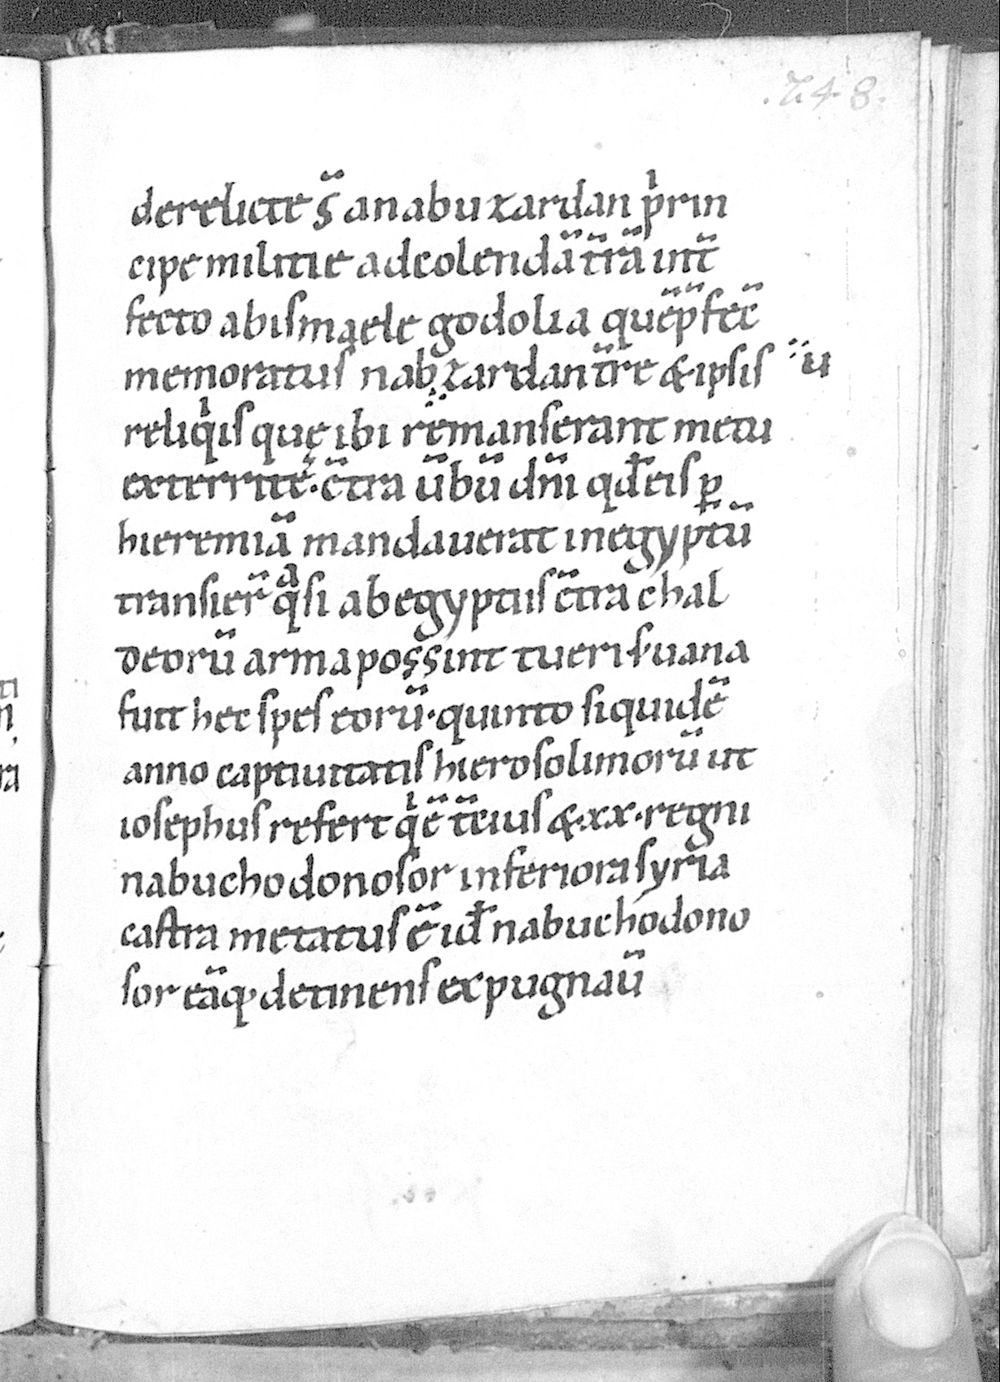 .248.
derelicte s̄ a nabuzardan pͥrin
cipe militie ad colendā t̄rā int̄
fecto ab ismaele godolia quē p̄fec̄
memoratus nabzardan t̄re & ipsis ü
reliqͥis que ibi rēmanserant metu
exterrite. c̄tra ūbū dn̄i qd̄ eis ꝑ
hieremiā mandauerat in egyptū
transier̄ qͣsi ab egyptus c̄tra chal
deorū arma possint tueri. s; uana
fuit hec spes eorū. quinto siquidē
anno captiuitatis hierosolimorū ut
iosephus refert qͥ ē t̄eius & .xx. regni
nabuchodonosor inferiora syria
castra metatus ē id̄ nabuchodono
sor eāq; detinens expugnaū